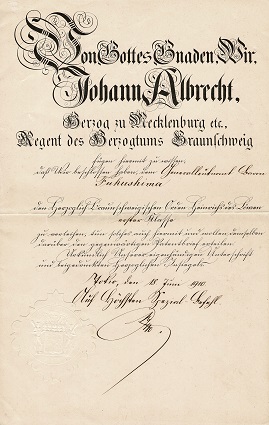 Von Gottes Gnaden, Wir,
Johann Albrecht,
Herzog zu Mecklenburg etc.,
Regent des Herzogtums Braunschweig
fügen hiermit zu wissen,
daß Wir beschlossen haben, dem Generalleutnant Baron
Fukushima
den Herzoglich Braunschweigischen Orden Heinrichs des Löwen
erster Klasse
zu verleihen, tun solches auch hiermit und wollen demselben
darüber den gegenwärtigen Patentbrief erteilen.
Urkundlich Unserer eigenhändigen Unterschrift
und beigedruckten Herzoglichen Insiegels.
Tokio, den 18. Juni 1910.
Auf Höchsten Spezial-Befehl